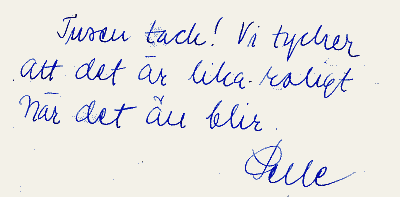 Tusen tack! Vi tycker
att det är lika roligt
när det än blir.
Pelle